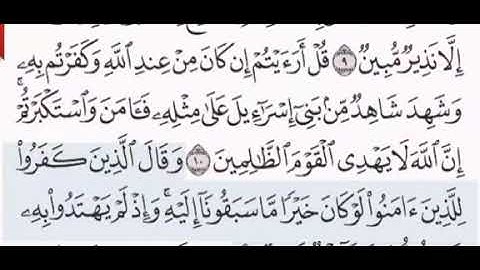 إِلَّا نَذِيرٌ مُّبِينٌ ٩ قُلْ أَرَءَيْتُمْ إِن كَانَ مِنْ عِندِ ٱللَّهِ وَكَفَرْتُم بِهِۦ
وَشَهِدَ شَاهِدٌ مِّنۢ بَنِىٓ إِسْرَٰٓءِيلَ عَلَىٰ مِثْلِهِۦ فَـَٔامَنَ وَٱسْتَكْبَرْتُمْ ۖ
إِنَّ ٱللَّهَ لَا يَهْدِى ٱلْقَوْمَ ٱلظَّٰلِمِينَ ١٠ وَقَالَ ٱلَّذِينَ كَفَرُوا۟
لِلَّذِينَ ءَامَنُوا۟ لَوْ كَانَ خَيْرًا مَّا سَبَقُونَآ إِلَيْهِ ۚ وَإِذْ لَمْ يَهْتَدُوا۟ بِهِۦ